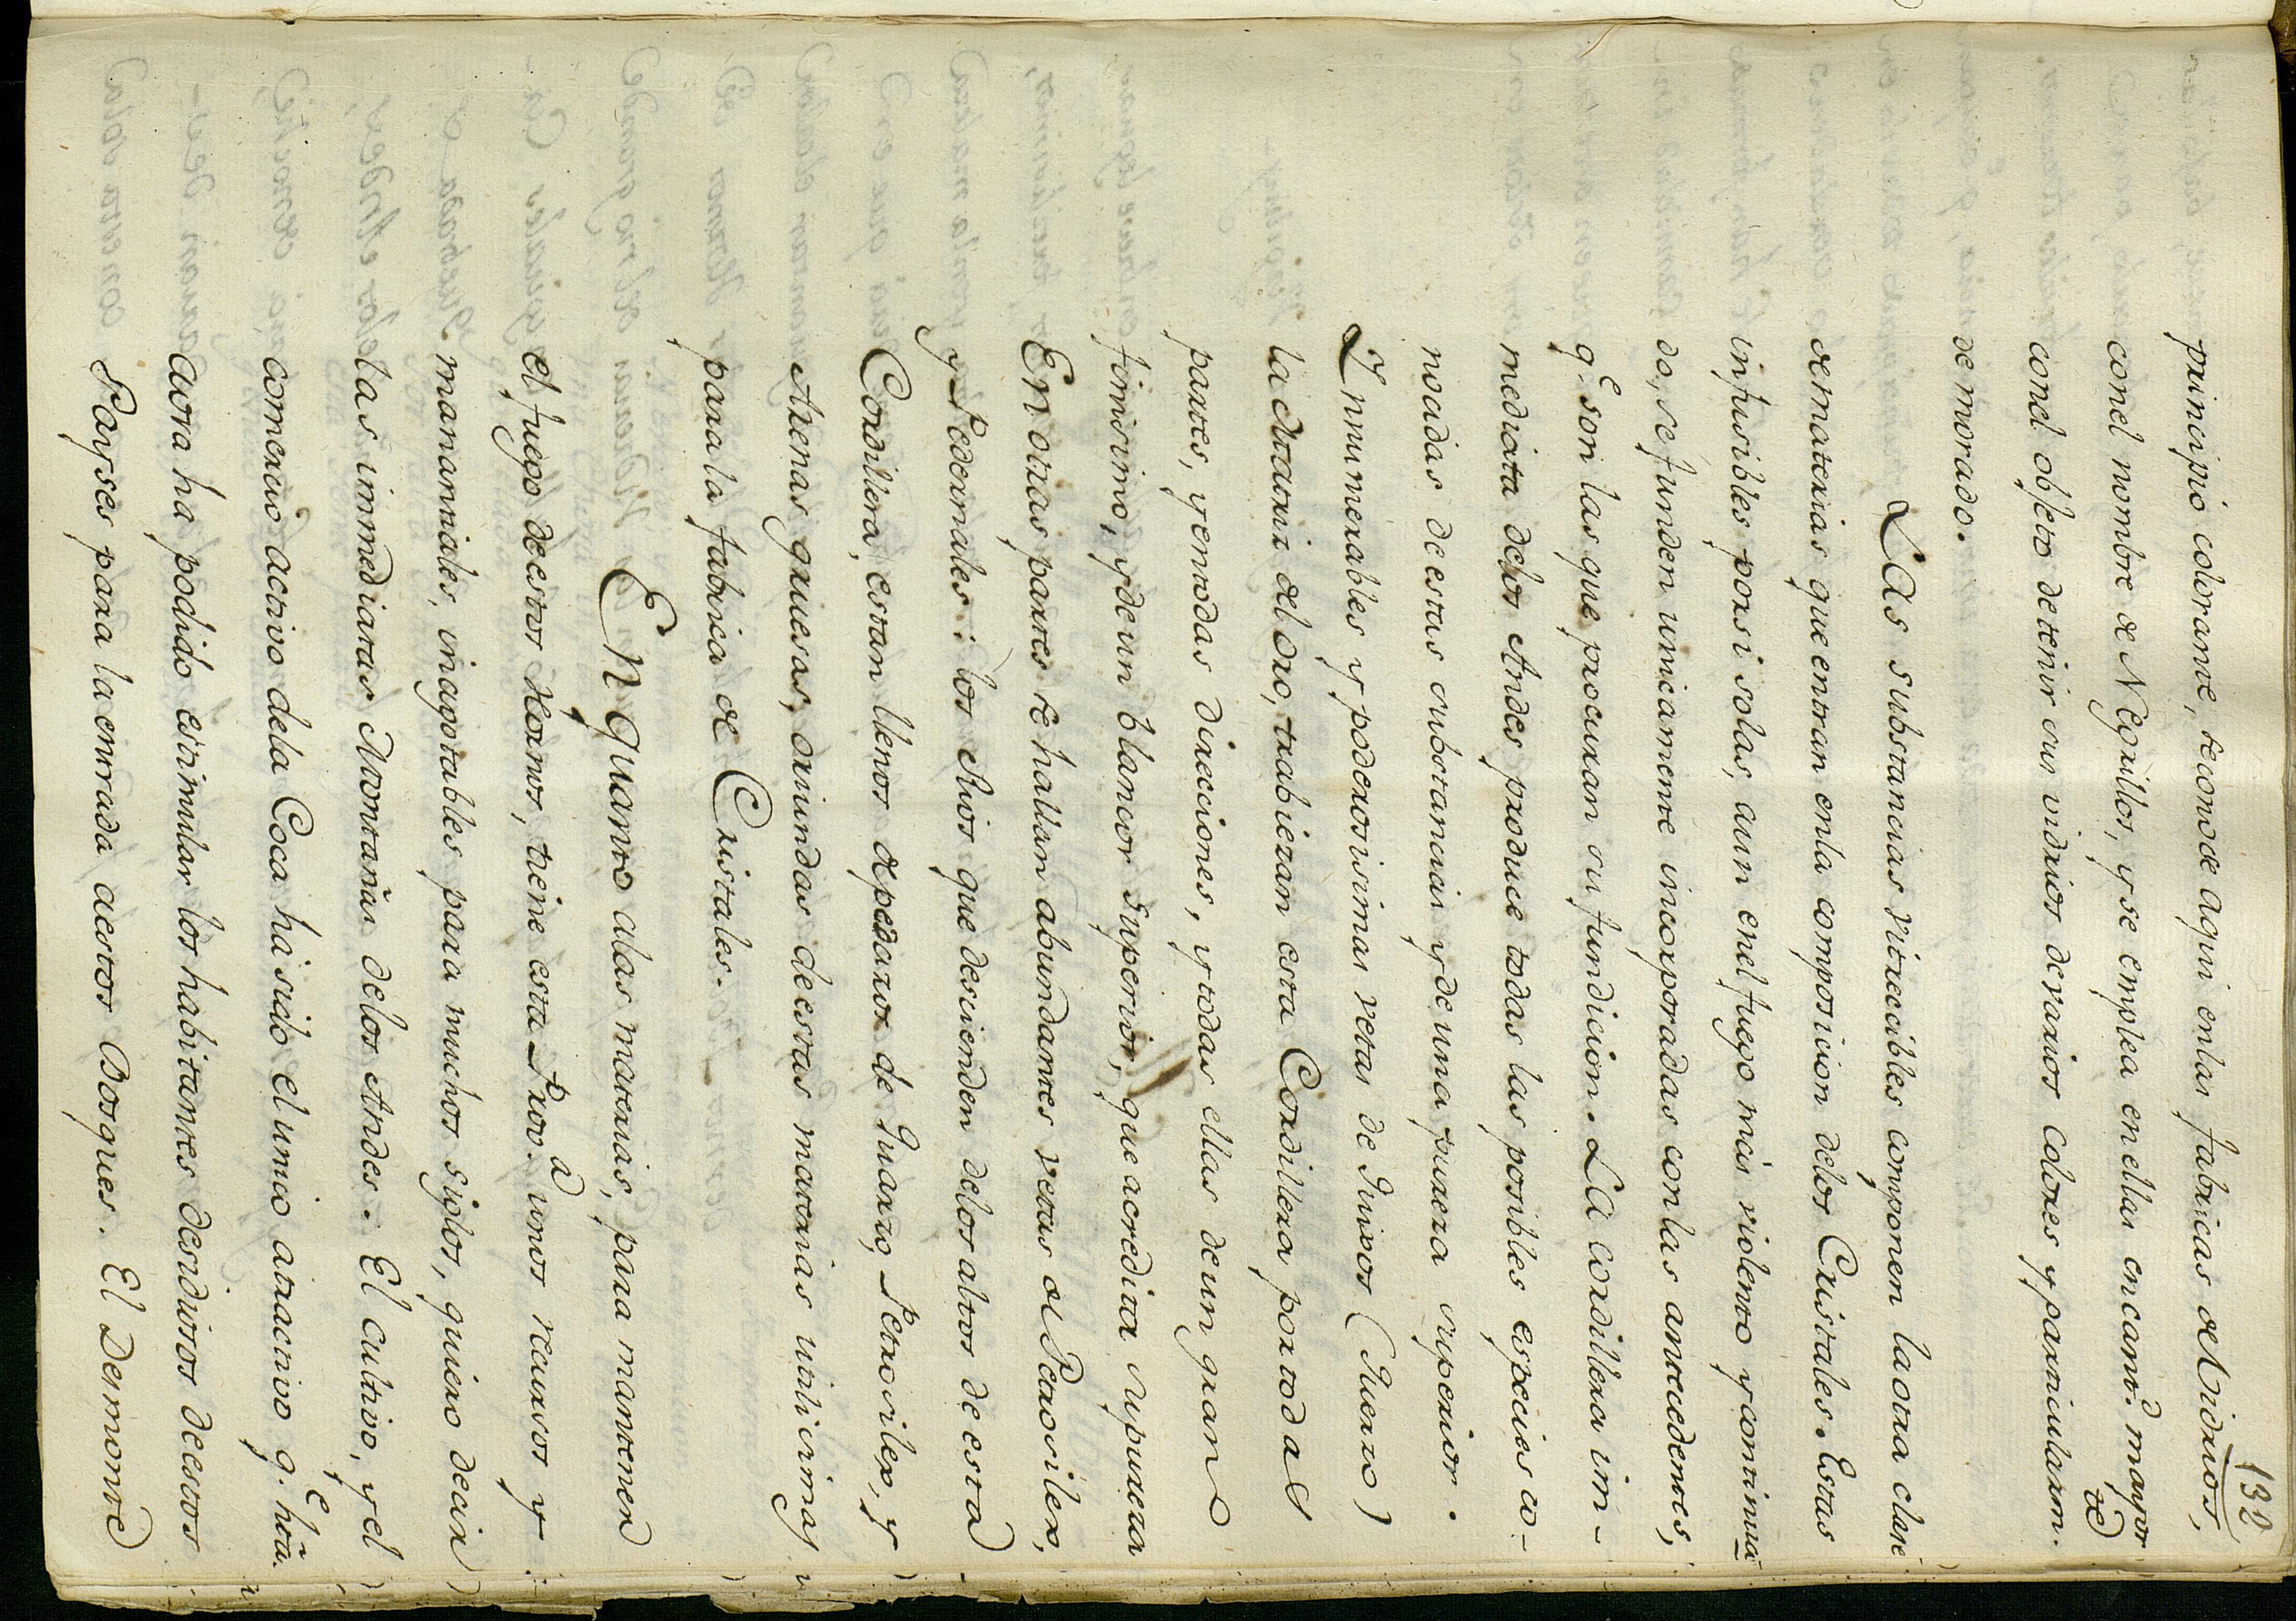 132
principio colorante, se conoce aqui enlas fabricas de Vidrios,
conel nombre de Negrillos, y se emplea en ellas en cant.d mayor
conel objeto de tenir sus vidrios de varios colores y particularm.te
de morado.
Las substancias vitrecibles componen la otra clase
de materias que entran enla composicion delos Cristales. Estas
infusibles por si solas, aun enel fuego mas violento y continua
do, se funden unicamente incorporadas con las antecedentes,
q.e son las que procuran su fundicion. La cordillera in-
mediata delos Andes produce todas las posibles especies co-
nocidas de estas substancias y de una pureza superior.
Innumerables y poderosisimas vetas de Quixos (Quarzo)
la Matriz del Oro, trabiezan esta Cordillera por todas
partes, y en todas direcciones, y todas ellas de un grano
finisimo, y de un blancor superior, que acredita su pureza
En otras partes se hallan abundantes vetas de Petrosilex,
y Pedernales: los Rios que descienden delos altos de esta
Cordillera, estan llenos de pedazos de Quarzo, Petrosilex, y
Arenas gruesas, oriundas de estas materias utilisimas
para la fabrica de Cristales.
En quanto alas materias, para mantener
el fuego de estos Hornos, tiene esta Prov.a unos recursos y
manantiales, inagotables para muchos siglos, quiero decir
las immediatas Montañas delos Andes. El cultivo, y el
comercio activo dela Coca ha sido el unico atractivo q.e hta.
aora ha podido estimular los habitantes desidiosos de estos
Payses para la entrada a estos Bosques. El Desmonte